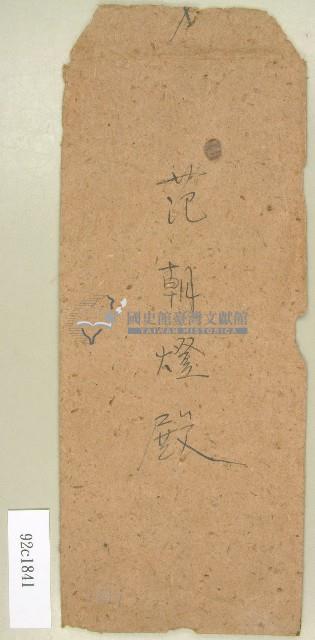 范朝燈殿
國史館臺灣文獻館
TAIWAN HISTORICA
92c1841